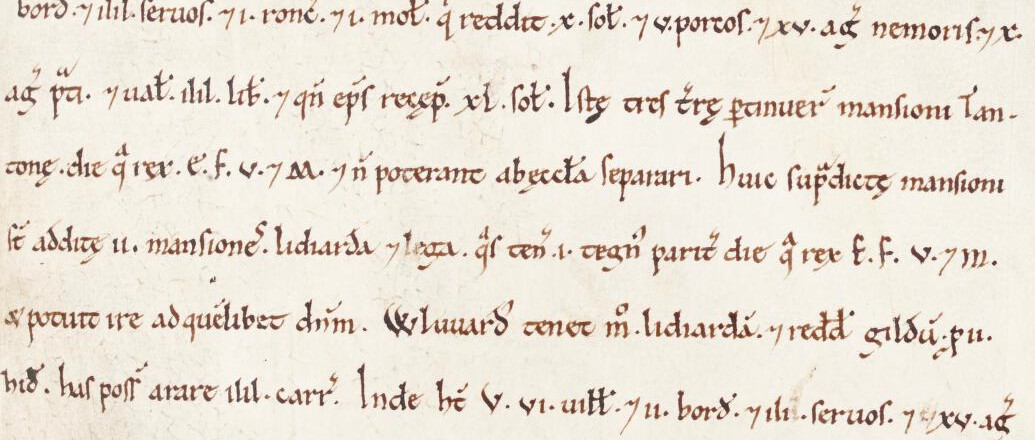 bord̄. ⁊ iiii. seruos. ⁊ i. ronc̄. ⁊ i. mot̄. q̄ reddit. x. sol̄. ⁊ v. porcos. ⁊ xv. ag̃ nemoris ⁊ x.
ag̃ p̃ti. ⁊ ual̄. iiii. lib̄. ⁊ qn̄ ep̄s recep̄. xl. sol̄. Istę tres t̄rę ꝑtinuer̃ mansioni Tan-
tonę. die q̃ rex. E. f. v. ⁊ m. ⁊ n̄ poterant ab ęccl̄a separari. Huic sup̃dictę mansioni
st̄ additę ii. mansiones. lidiarda ⁊ lega. q̃s ten̄. i. tegn̄ parit̃ die q̃ rex E. f. v. ⁊ m.
& potuit ire ad quēlibet dn̄m. Wluuard̄ tenet m̊. lidiardā. ⁊ redd̄ gildū. ꝑ ii.
hid̄. has poss̄ arare iiii. carr̃. Inde ht̄ V. vi. uill̄. ⁊ ii. bord̄. ⁊ iii. seruos. ⁊ xv. ag̃